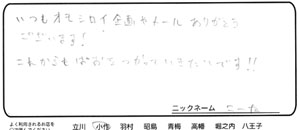 いつもオモシロイ企画やメールありがとう
ございます!
これからも ていきたいです!!
ニックネーム こーた
よく利用されるお店を
立川 小作 羽村 昭島 青梅 高幡 堀之内 八王子